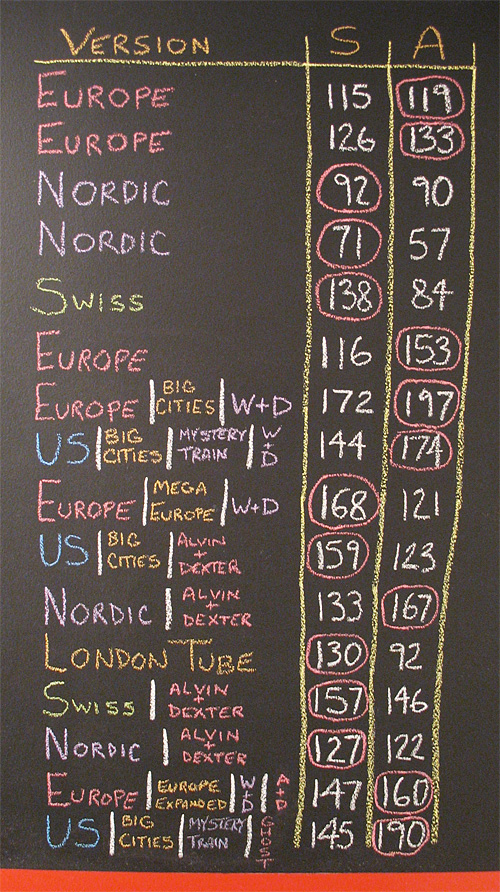 VERSION S A
EUROPE 115 119
EUROPE 126 133
NORDIC 92 90
NORDIC 71 57
SWISS 138 84
EUROPE 116 153
EUROPE | BIG CITIES | W+D 172 197
US | BIG CITIES | MYSTERY TRAIN | W+D 144 174
EUROPE | MEGA EUROPE | W+D 168 121
US | BIG CITIES | ALVIN + DEXTER 159 123
NORDIC | ALVIN + DEXTER 133 167
LONDON TUBE 130 92
SWISS | ALVIN + DEXTER 157 146
NORDIC | ALVIN + DEXTER 127 122
EUROPE | EUROPE EXPANDED | W+D | A+D 147 160
US | BIG CITIES | MYSTERY TRAIN | GHOST 145 190